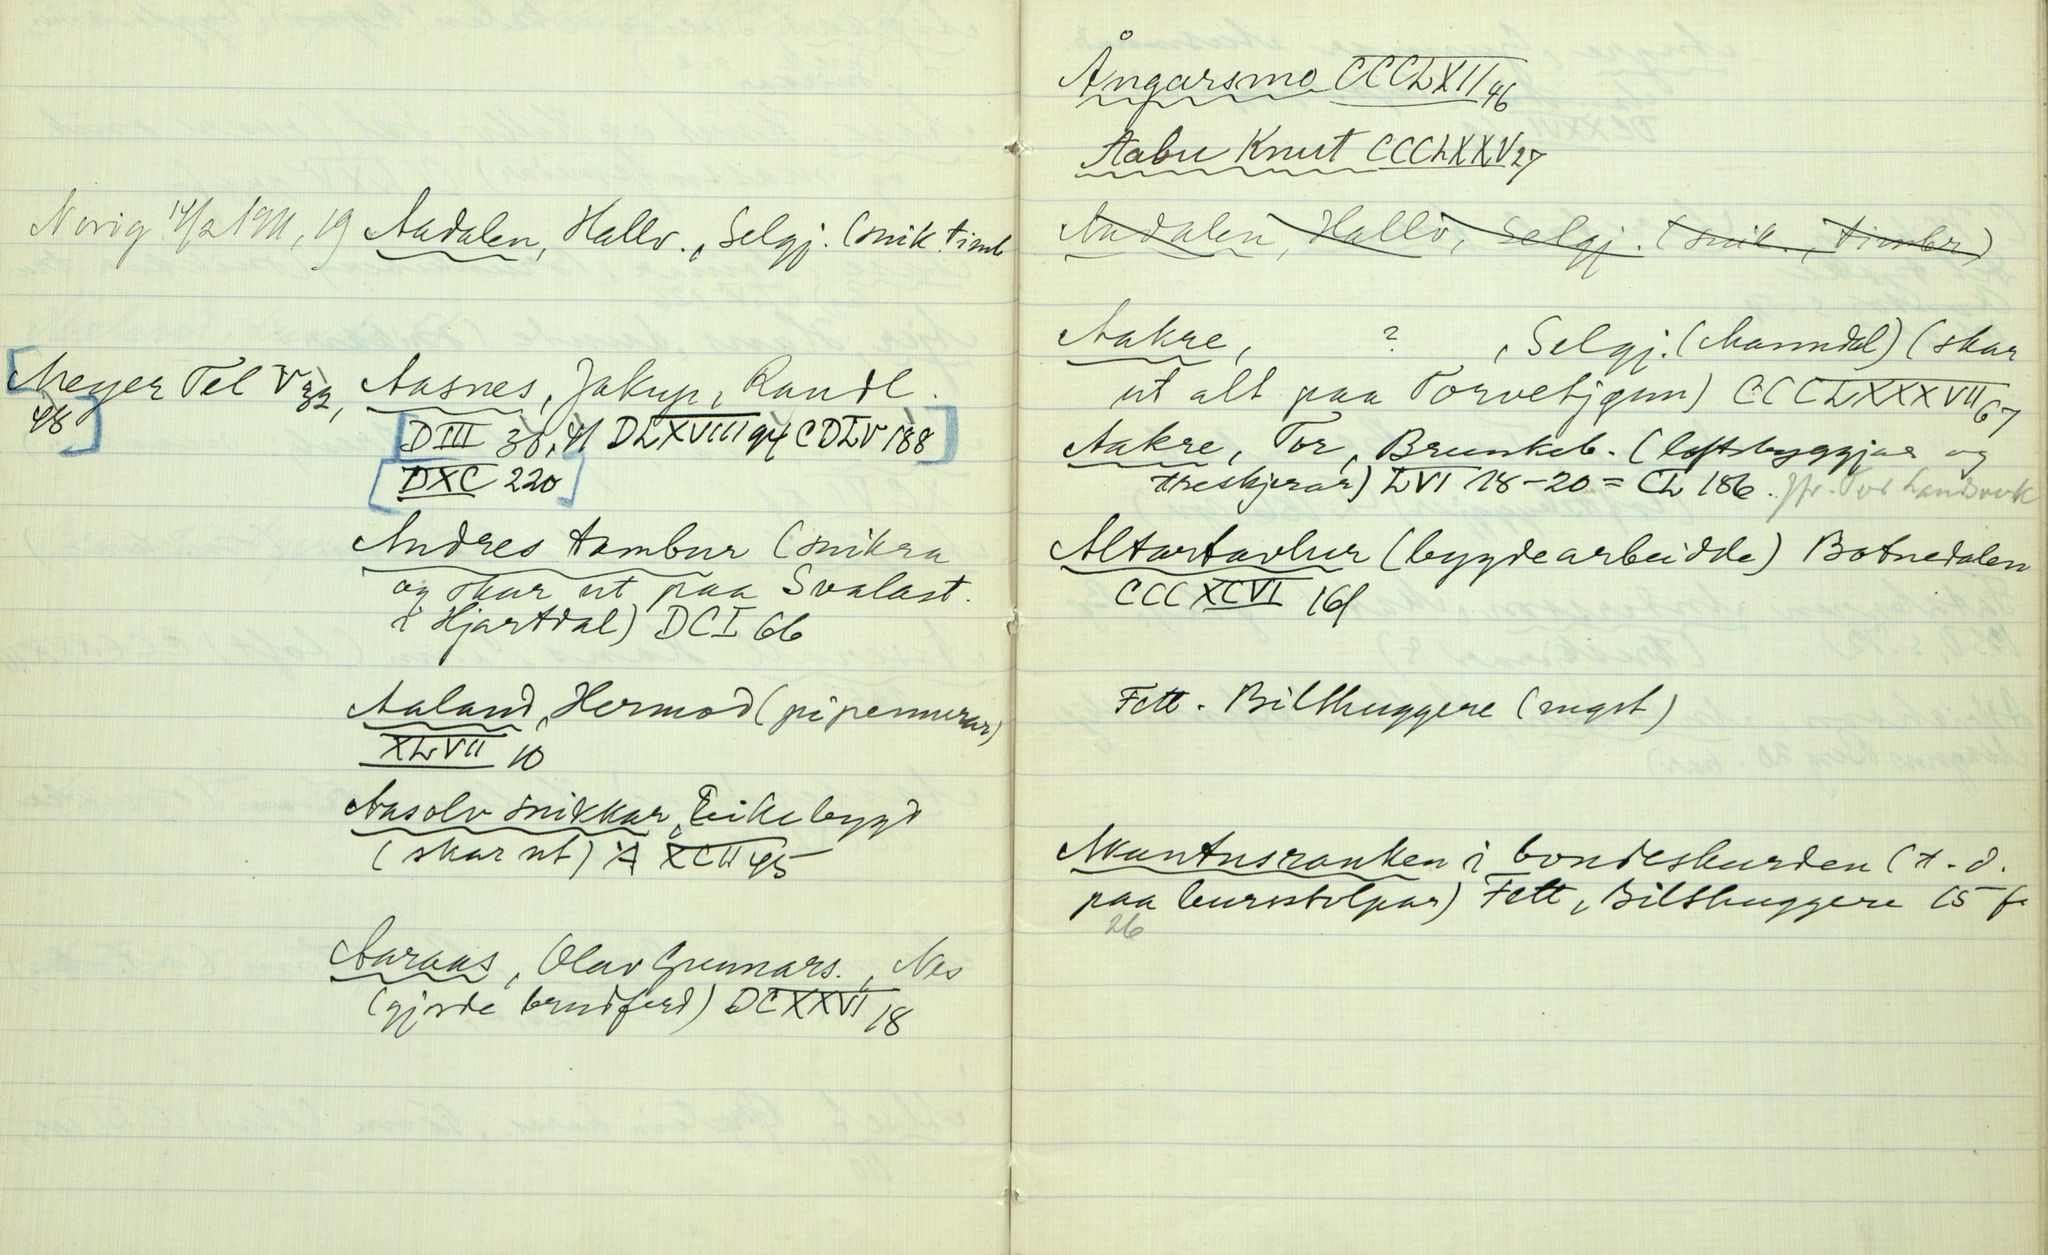 Norig 14/2 1911, 19 Aadalen, Hallv., Selgj. (snik. timb
Meyer Tel V 32, Aasnes, Jakup, Raudl.
48 DIII 30, 41 DLXVIII 94 CDLV 188
DXC 220
Andres tambur (snikra
og skar ut paa Svalast.
i Hjartdal) DCI 66
Aaland, Hermod (pipemurar)
XLVII 10
Aasolv snikkar, Eikebygd
(skar ut) XCII 45
Aaraas, Olav Gunnars., Nes
(gjorde brudferd) DCXXVI 18
Å
Ångarsmo CCCLXII 46
Aabu Knut CCCLXXV 27
Aadalen, Hallv, Selgj. (snik., timbr)
Aakre, ?, Selgj. (Manndal) (skar
ut alt paa Torvetjønn) CCCLXXXVII 67
Aakre, Tor, Brunkeb. (loftsbyggjar og
treskjerar) LVI 18-20 = CL 186. Jfr. Tor Landsverk
Altartavlur (bygdearbeidde) Botnedalen
CCCXCVI 161
Fett. Bilthuggere (ugst)
Akantusranken i bondeskurden (t. d.
paa bursstolpar) Fett, Bilthuggere 15 f.
26